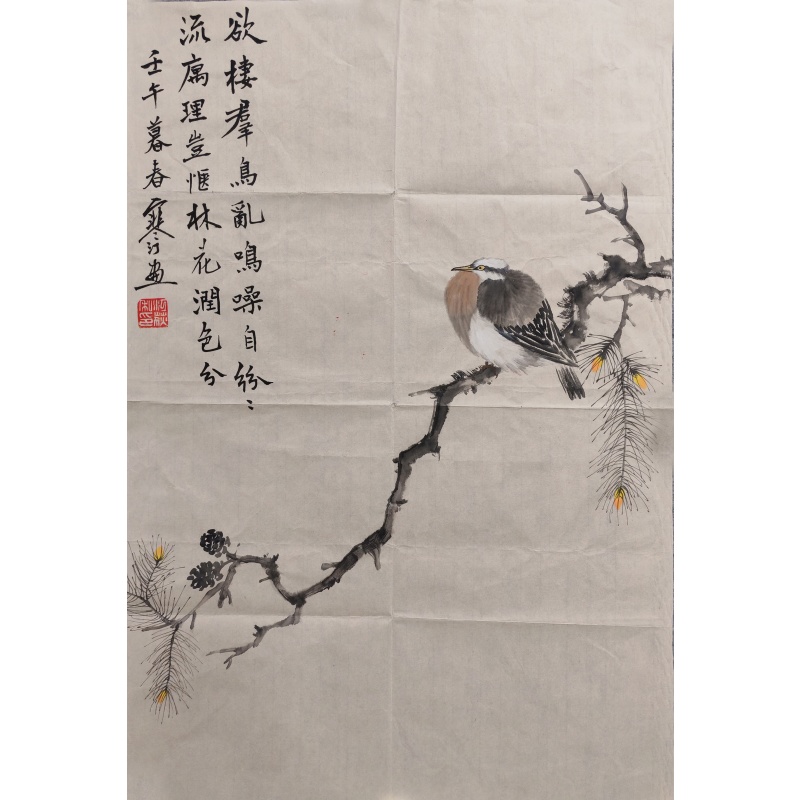 欲棲羣鳥亂鳴噪自紛〻
流庽理豈愜林花潤色分
壬午暮春寒汀畫
江荻私印